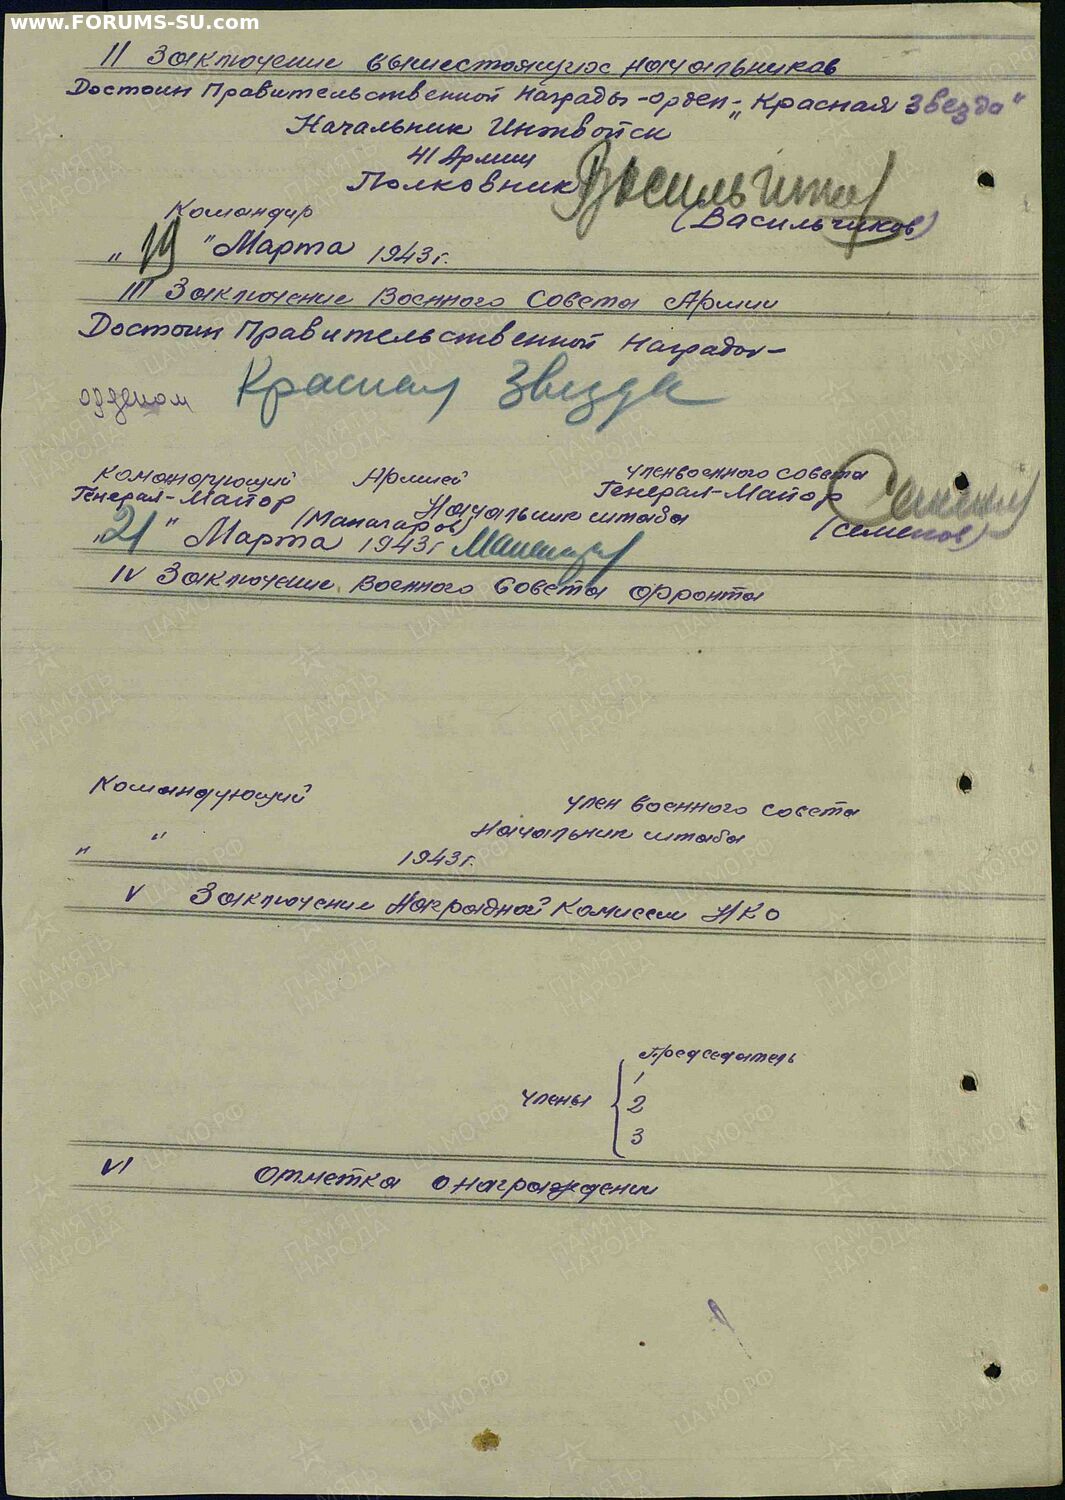 www.FORUMS-SU.com
II Заключение вышестоящих начальников
Достоин Правительственной Награды - орден "Красная Звезда"
Начальник Инжвойск
41 Армии
Полковник Васильчиков
Командир (Васильчиков)
"19" Марта 1943 г.
III Заключение Военного Совета Армии
Достоин Правительственной Награды -
орденом Красная Звезда
Командующий Армией Член военного совета
Генерал-Майор Генерал-Майор
(Манагаров) Начальник штаба (Семенов)
"21" Марта 1943 г
IV Заключение Военного Совета Фронта
Командующий Член военного совета
Начальник штаба
" " 1943 г.
V Заключение Наградной Комиссии НКО
Председатель
Члены { 1
2
3
VI Отметка о награждении
ПАМЯТЬ НАРОДА
ЦАМО.РФ